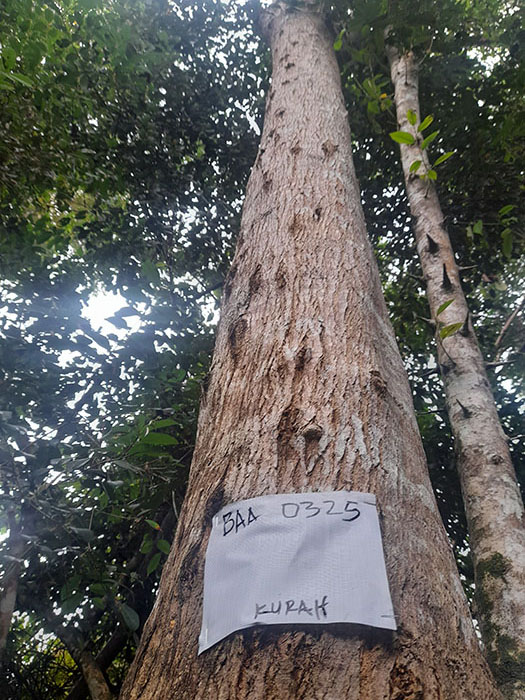 BAA 0325
KURAH